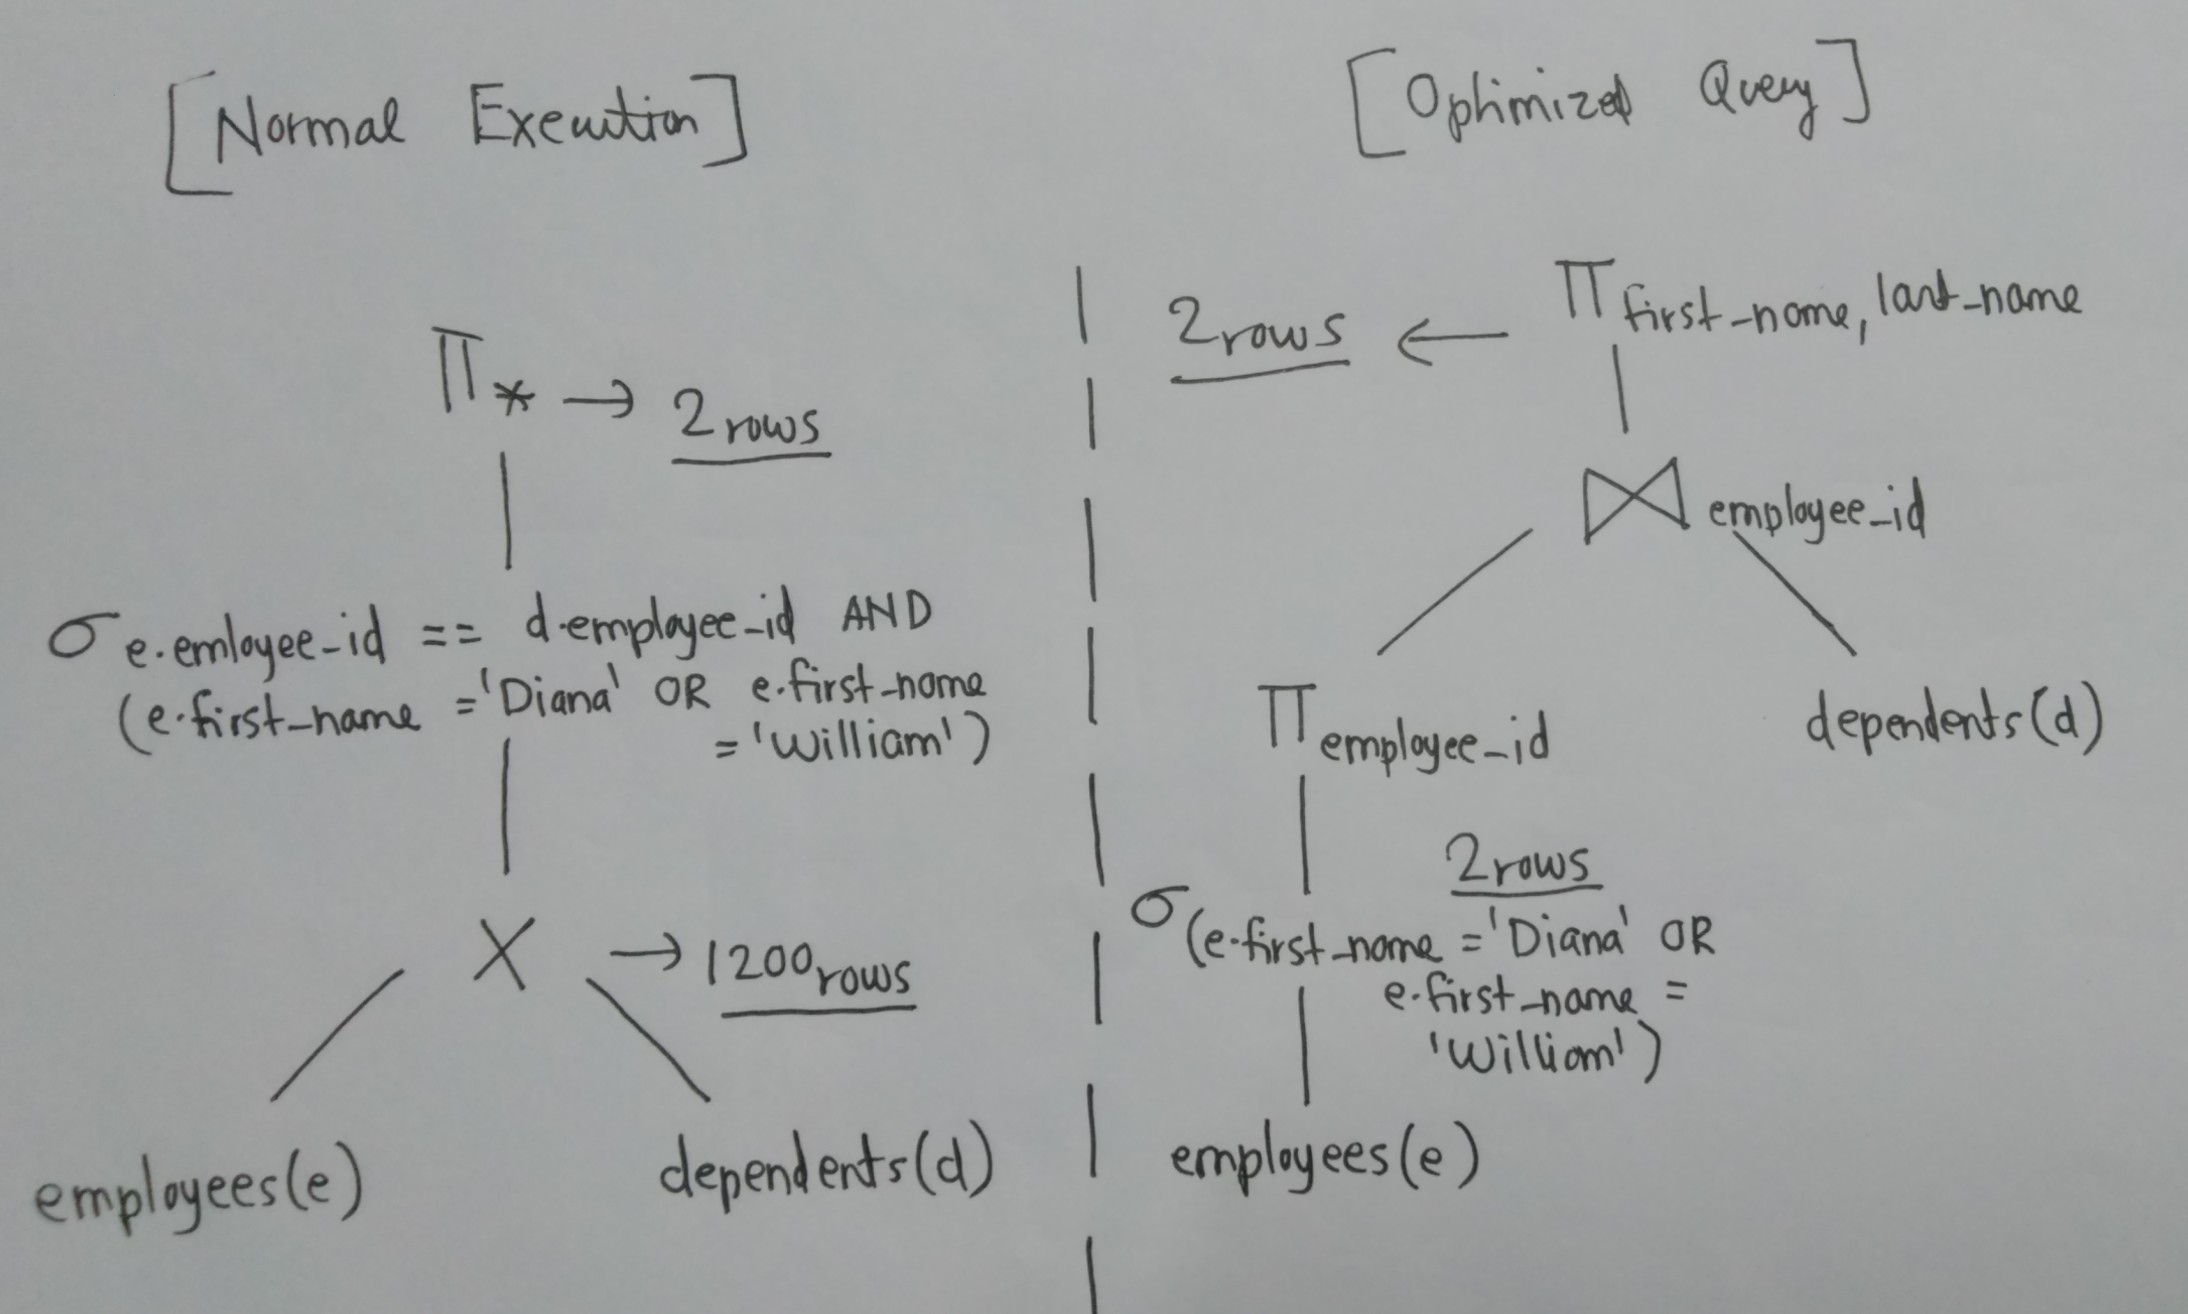 [Normal Execution]
Π * → 2 rows
σ e.emloyee_id == d.employee_id AND
(e.first_name = 'Diana' OR e.first_name
= 'William')
X → 1200 rows
employees(e) dependents(d)
[Optimized Query]
2 rows ← Π first_name, last_name
⋈ employee_id
Π employee_id dependents(d)
2 rows
σ (e.first_name = 'Diana' OR
e.first_name =
'William')
employees(e)